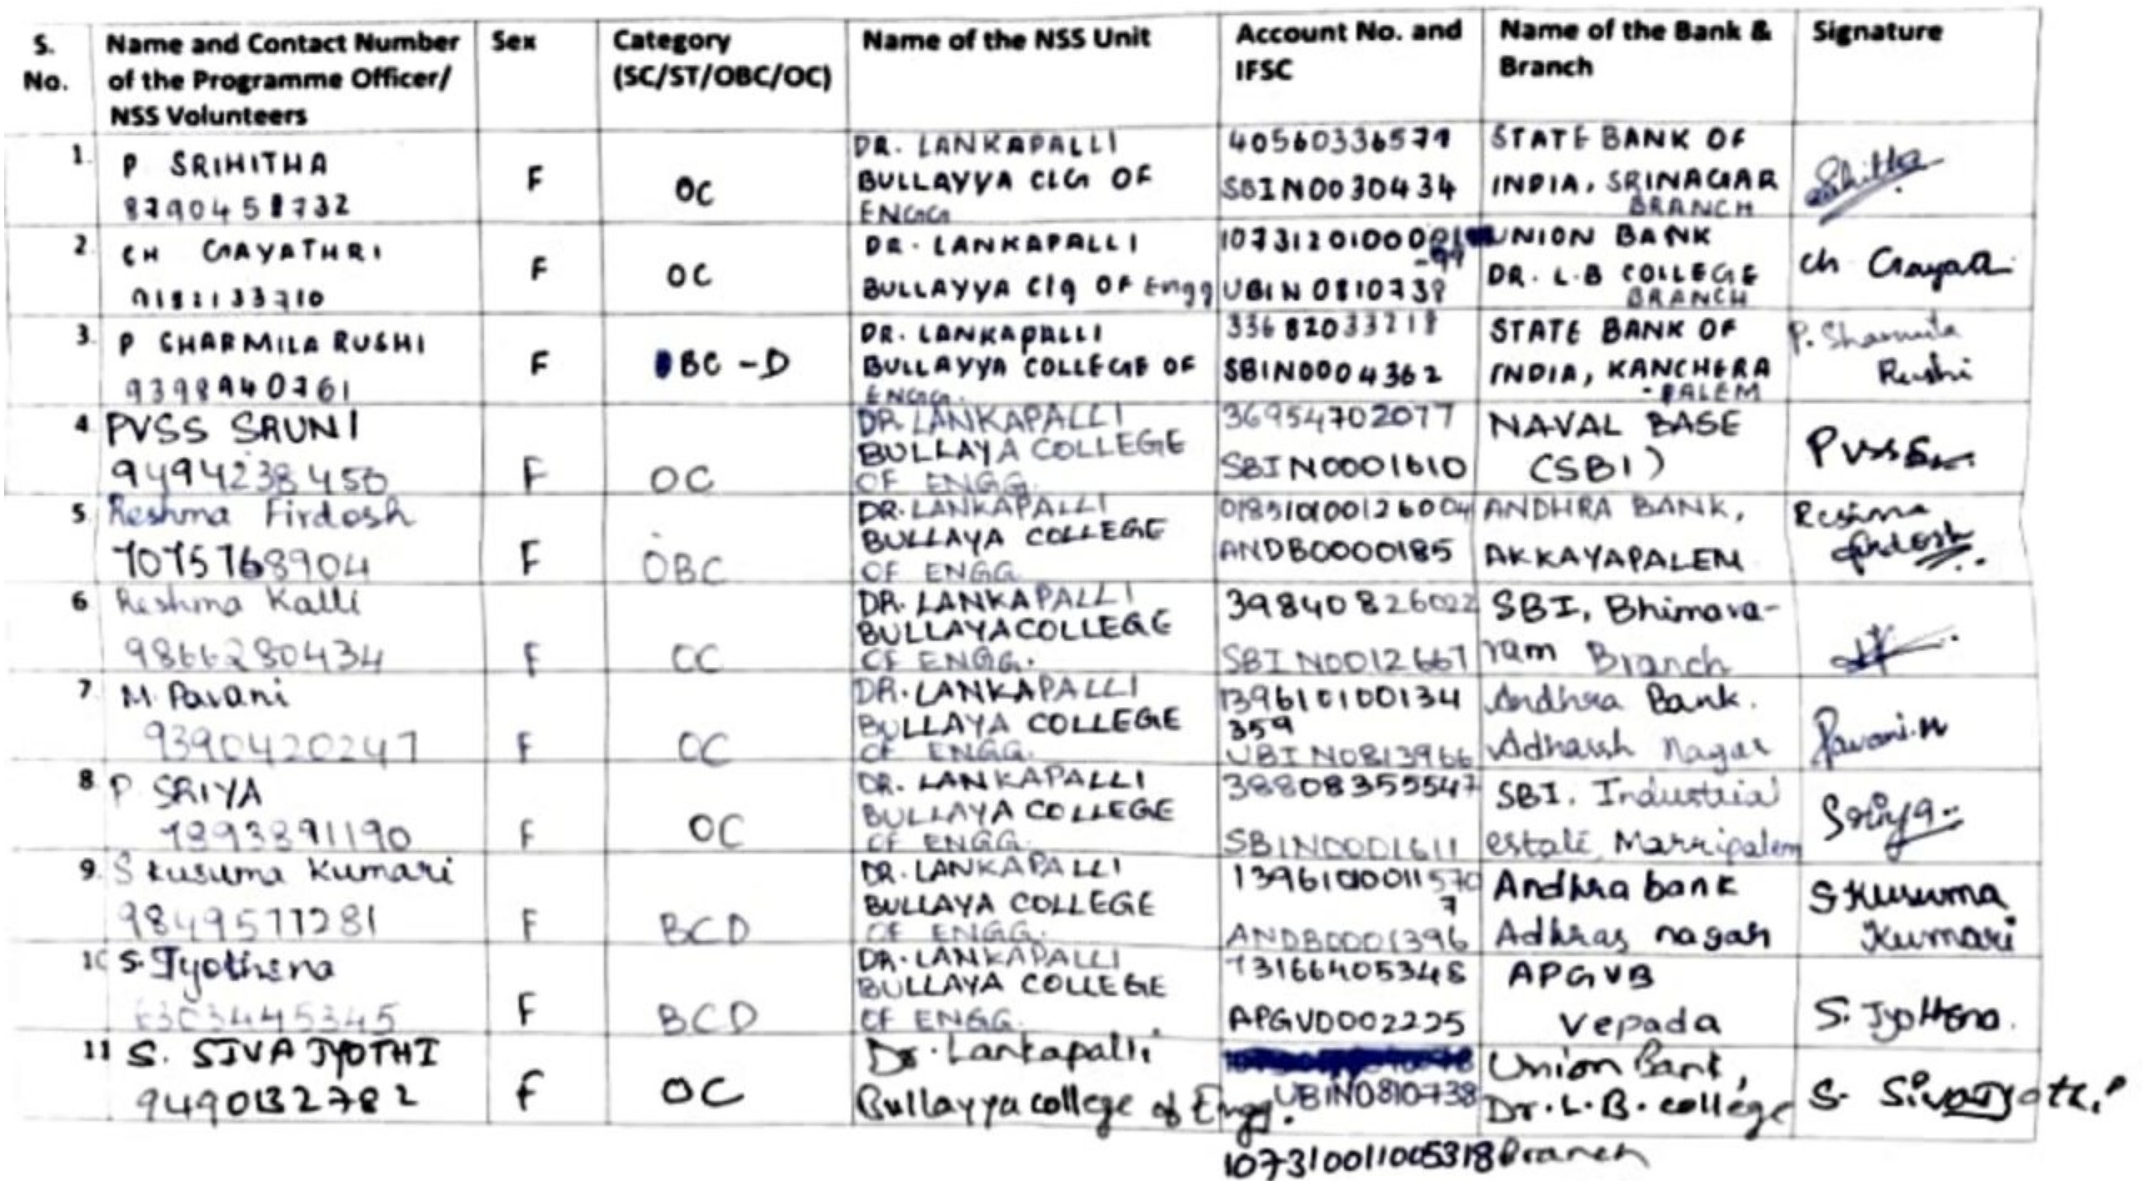 S. No.
Name and Contact Number of the Programme Officer/ NSS Volunteers
Sex
Category (SC/ST/OBC/OC)
Name of the NSS Unit
Account No. and IFSC
Name of the Bank & Branch
Signature
1.
P SRIHITHA
F
OC
DR. LANKAPALLI
BULLAYYA CLG OF
ENGG
SBIN0030434
STATE BANK OF
INDIA, SRINAGAR
BRANCH
2.
CH GAYATHRI
F
OC
DR. LANKAPALLI
BULLAYYA Clg OF Engg
UBIN0810738
UNION BANK
DR. L.B COLLEGE
BRANCH
ch Gayatri
3.
P SHARMILA RUSHI
F
BC -D
DR. LANKAPALLI
BULLAYYA COLLEGE OF
ENGG.
SBIN0004362
STATE BANK OF
INDIA, KANCHERA
-PALEM
P. Sharmila
Rushi
4
PVSS SRUNI
9494238450
F
OC
DR. LANKAPALLI
BULLAYA COLLEGE
OF ENGG.
36954702077
SBIN0001610
NAVAL BASE
(SBI)
5.
Reshma Firdosh
7075768904
F
OBC
DR. LANKAPALLI
BULLAYA COLLEGE
OF ENGG
018510100126004
ANDB0000185
ANDHRA BANK,
AKKAYAPALEM
Reshma
firdosh
6
Reshma Kalli
9866280434
F
OC
DR. LANKAPALLI
BULLAYA COLLEGE
OF ENGG.
39840826022
SBIN0012667
SBI, Bhimava-
ram Branch
7.
M. Pavani
9390420247
F
OC
DR. LANKAPALLI
BULLAYA COLLEGE
OF ENGG.
139610100134
359
UBIN0813966
Andhra Bank.
Adharsh Nagar
Pavani.M
8.
P SRIYA
7893891190
F
OC
DR. LANKAPALLI
BULLAYA COLLEGE
OF ENGG.
38808355547
SBIN0001611
SBI. Industrial
estate, Marripalem
Sriya
9.
S Kusuma Kumari
9849577281
F
BCD
DR. LANKAPALLI
BULLAYA COLLEGE
OF ENGG.
ANDB0001396
Andhra bank
Adhras nagar
S Kusuma
Kumari
10
S. Jyothsna
F
BCD
DR. LANKAPALLI
BULLAYA COLLEGE
OF ENGG.
73166405348
APGV0002225
APGVB
Vepada
S. Jyothsna.
11
S. SIVA JYOTHI
9490132782
F
OC
Dr. Lankapalli
Bullayya college of Engg.
UBIN0810738
107310011005318
Union Bank,
Dr. L. B. college
Branch
S. Siva Jyothi